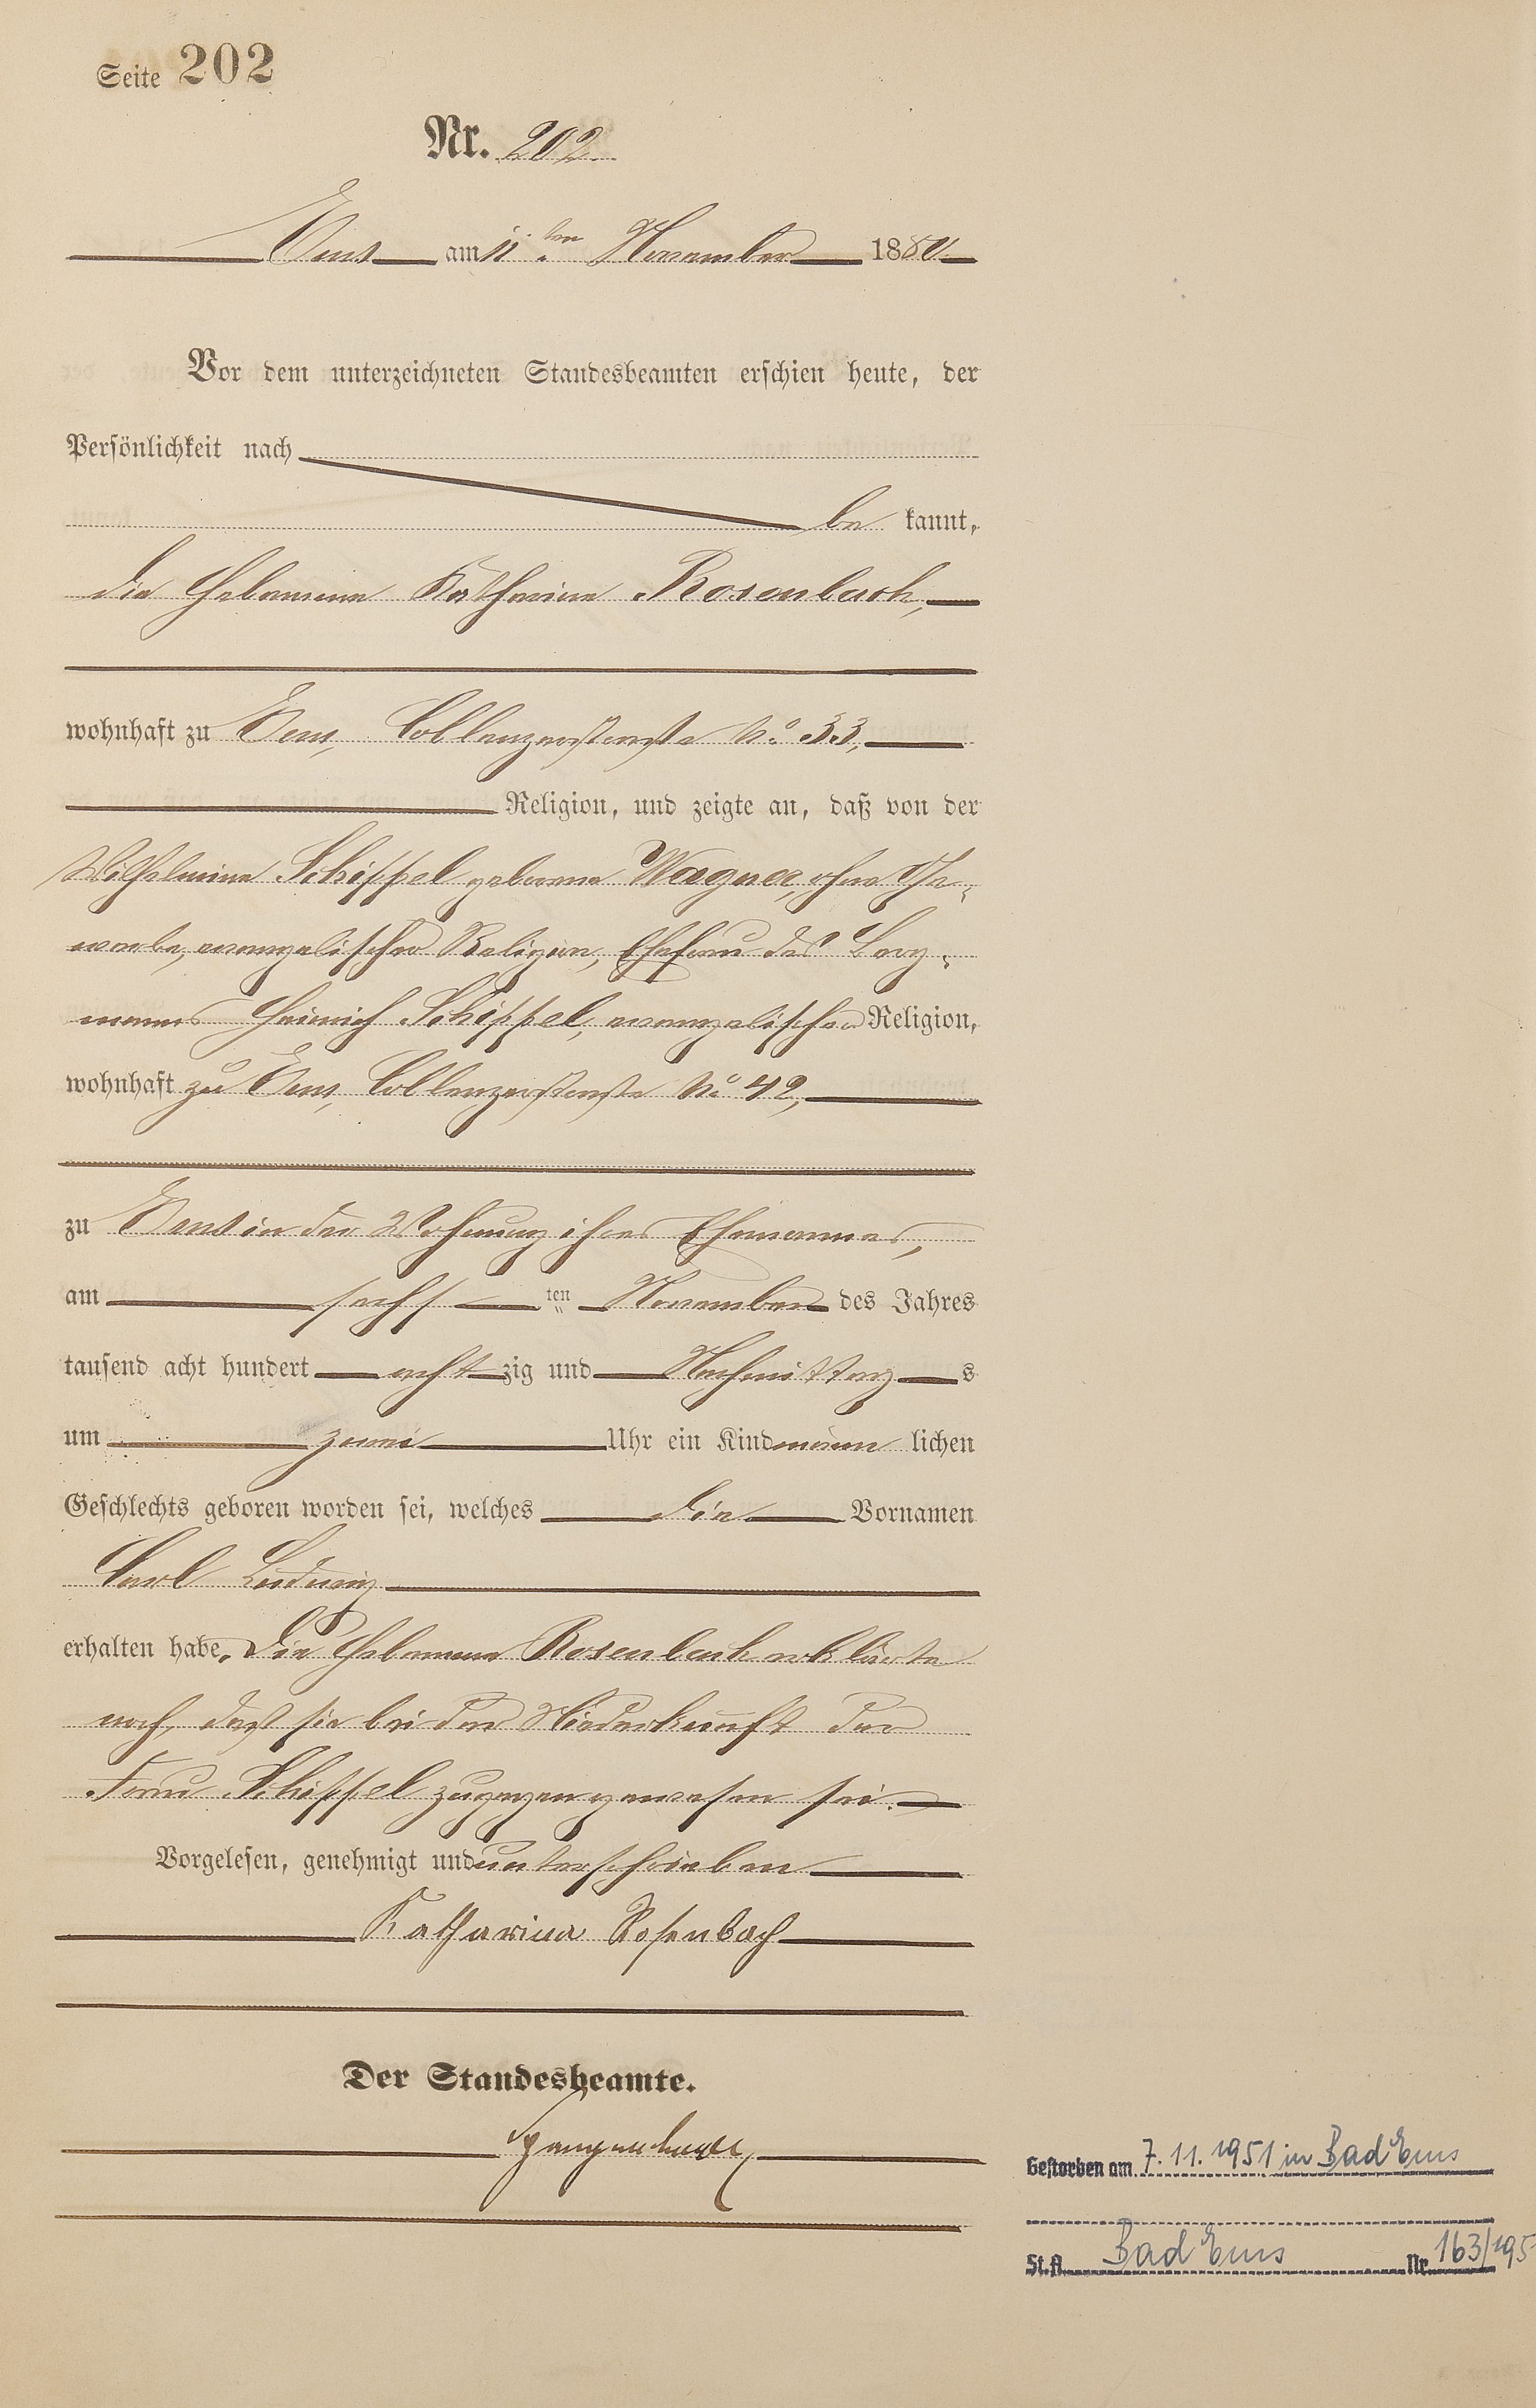 Seite 202
Nr. 202
Ems am 11ten November 1880
Vor dem unterzeichneten Standesbeamten erschien heute, der
Persönlichkeit nach
be kannt,
die Hebamme Katharina Rosenbach,
wohnhaft zu Ems, Coblenzerstraße No. 33,
Religion, und zeigte an, daß von der
Wilhelmine Schippel geborene Wagner, ohne Ge-
werbe, evangelischer Religion, Ehefrau des Berg-
manns Heinrich Schippel, evangelischer Religion,
wohnhaft zu Ems, Coblenzerstraße No. 42,
zu Ems in der Wohnung ihres Ehemannes,
am sechsten November des Jahres
tausend acht hundert achtzig und Nachmittags
um zwei Uhr ein Kind männlichen
Geschlechts geboren worden sei, welches die Vornamen
Carl Ludwig
erhalten habe. Die Hebamme Rosenbach erklärte
noch, daß sie bei der Niederkunft der
Frau Schippel zugegen gewesen sei.
Vorgelesen, genehmigt und unterschrieben
Katharina Rosenbach
Der Standesbeamte.
Gestorben am 7.11.1951 in Bad Ems
St.A. Bad Ems Nr. 163/195